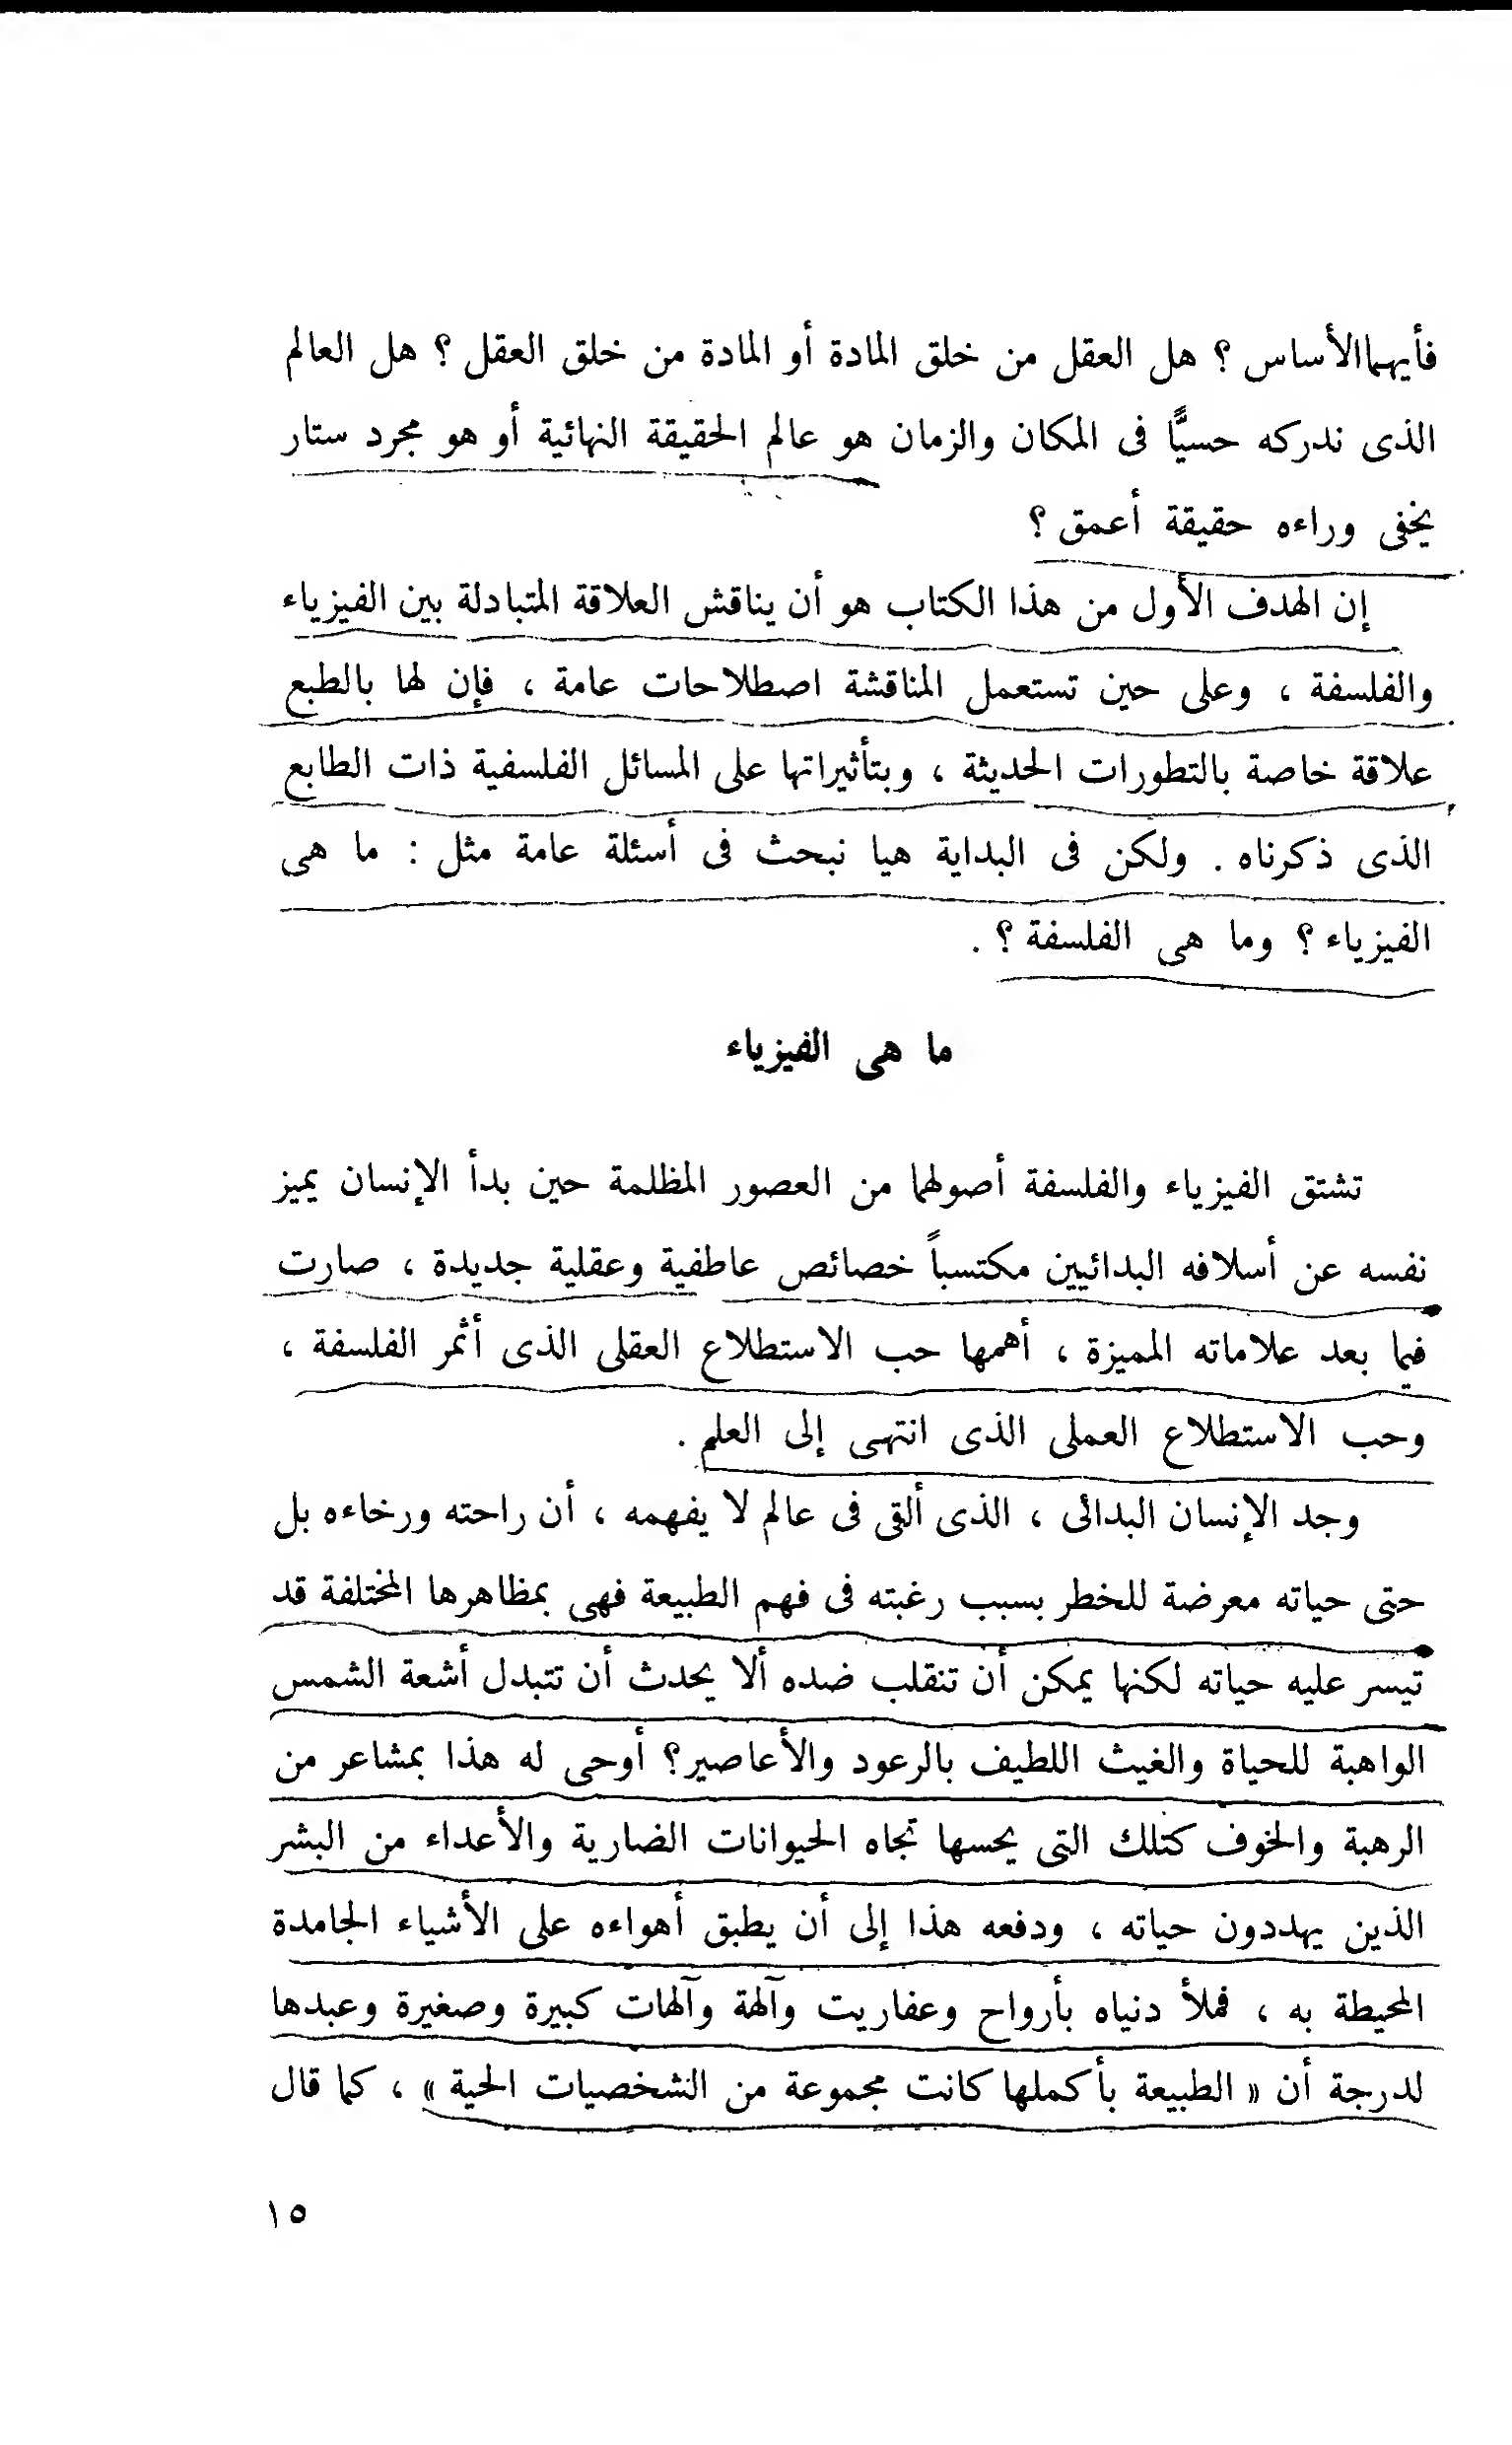 فأيهما الأساس ؟ هل العقل من خلق المادة أو المادة من خلق العقل ؟ هل العالم
الذى ندركه حسيًّا فى المكان والزمان هو عالم الحقيقة النهائية أو هو مجرد ستار
يخفى وراءه حقيقة أعمق ؟
إن الهدف الأول من هذا الكتاب هو أن يناقش العلاقة المتبادلة بين الفيزياء
والفلسفة ، وعلى حين تستعمل المناقشة اصطلاحات عامة ، فإن لها بالطبع
علاقة خاصة بالتطورات الحديثة ، وبتأثيراتها على المسائل الفلسفية ذات الطابع
الذى ذكرناه . ولكن فى البداية هيا نبحث فى أسئلة عامة مثل : ما هى
الفيزياء ؟ وما هى الفلسفة ؟ .
ما هى الفيزياء
تشتق الفيزياء والفلسفة أصولهما من العصور المظلمة حين بدأ الإنسان يميز
نفسه عن أسلافه البدائيين مكتسباً خصائص عاطفية وعقلية جديدة ، صارت
فيما بعد علاماته المميزة ، أهمها حب الاستطلاع العقلى الذى أثمر الفلسفة ،
وحب الاستطلاع العملى الذى انتهى إلى العلم .
وجد الإنسان البدائى ، الذى ألقى فى عالم لا يفهمه ، أن راحته ورخاءه بل
حتى حياته معرضة للخطر بسبب رغبته فى فهم الطبيعة فهى بمظاهرها المختلفة قد
تيسر عليه حياته لكنها يمكن أن تنقلب ضده ألا يحدث أن تتبدل أشعة الشمس
الواهبة للحياة والغيث اللطيف بالرعود والأعاصير؟ أوحى له هذا بمشاعر من
الرهبة والخوف كتلك التى يحسها تجاه الحيوانات الضارية والأعداء من البشر
الذين يهددون حياته ، ودفعه هذا إلى أن يطبق أهواءه على الأشياء الجامدة
المحيطة به ، فملأ دنياه بأرواح وعفاريت وآلهة وآلهات كبيرة وصغيرة وعبدها
لدرجة أن « الطبيعة بأكملها كانت مجموعة من الشخصيات الحية » ، كما قال
١٥